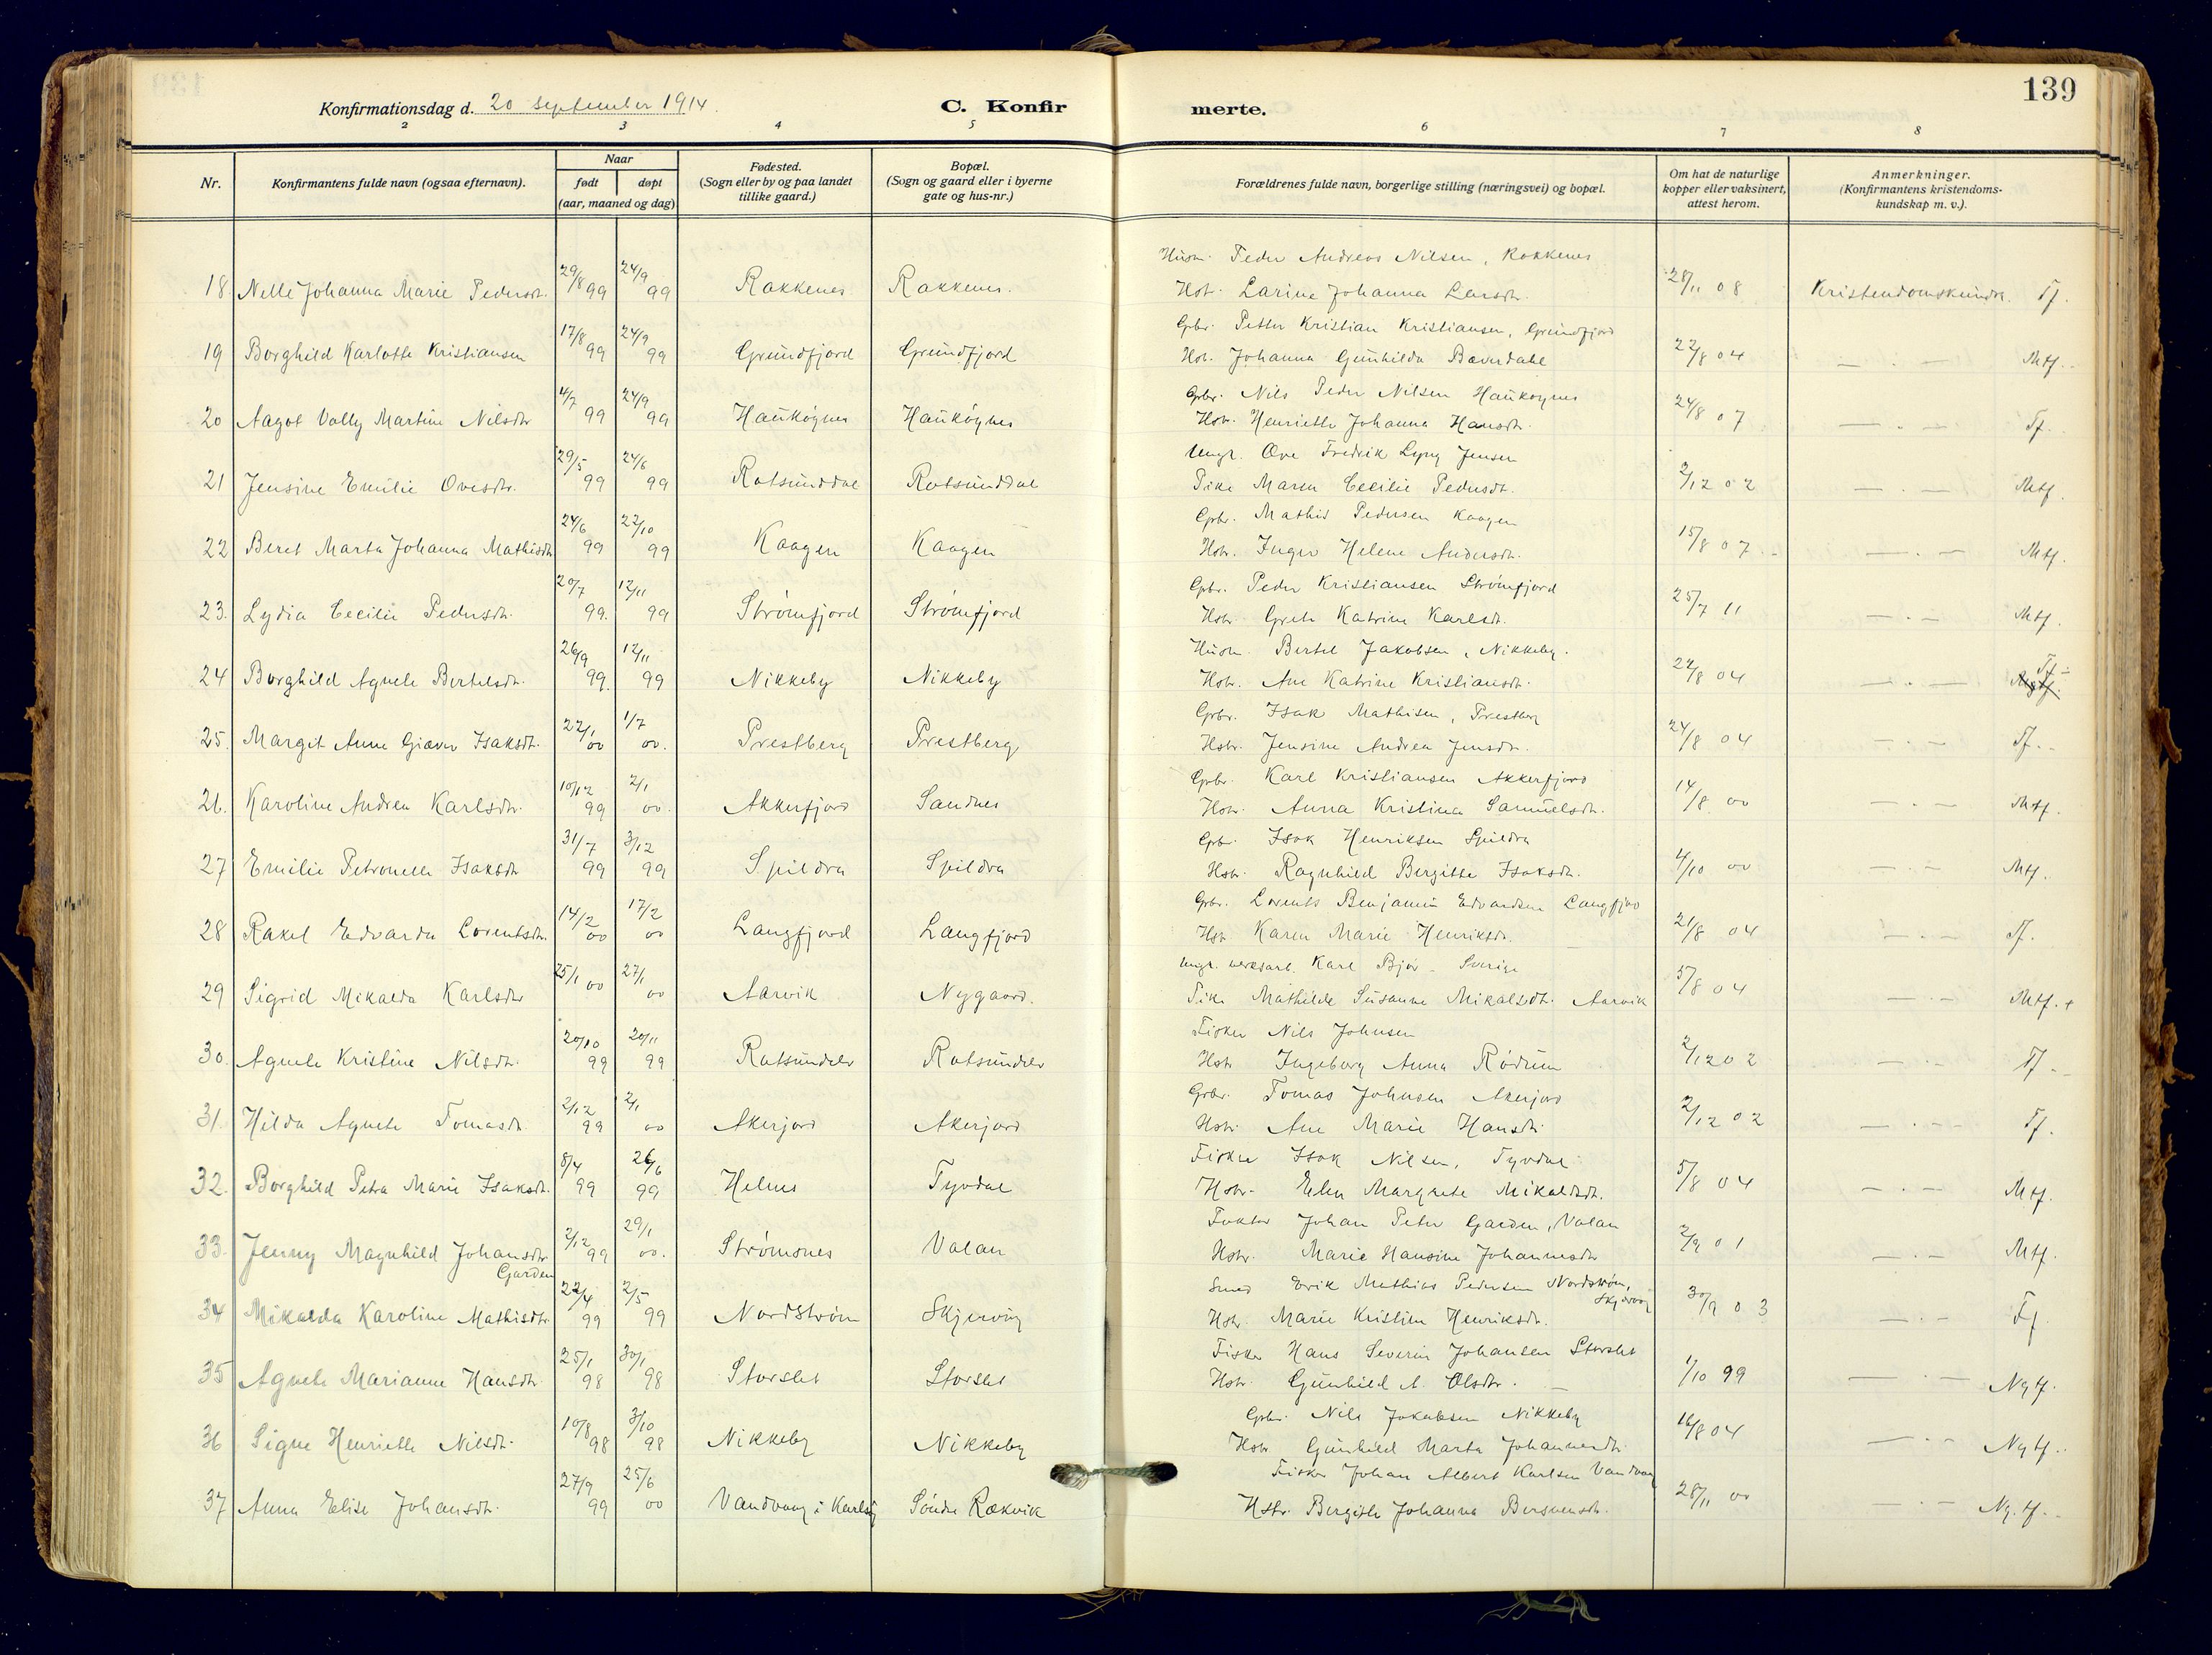 139
Konfirmationsdag d. 20 september 1914.
C. Konfirmerte.
2 3 4 5 6 7 8
Nr.
Konfirmantens fulde navn (ogsaa efternavn).
Naar
født
døpt
(aar, maaned og dag)
Fødested.
(Sogn eller by og paa landet
tillike gaard.)
Bopæl.
(Sogn og gaard eller i byerne
gate og hus-nr.)
Forældrenes fulde navn, borgerlige stilling (næringsvei) og bopæl.
Om hat de naturlige
kopper eller vaksinert,
attest herom.
Anmerkninger.
(Konfirmantens kristendoms-
kundskap m. v.).
Husm. Peder Andreas Nilsen, Rakkenes
18. Nelle Johanna Marie Pedersdt. 29/8 99 24/9 99 Rakkenes Rakkenes. Hst. Larine Johanna Larsdt. 28/11 08 Kristendomskundsk. Tf.
Gbr. Petter Kristian Kristiansen, Grundfjord
19 Borghild Karlotte Kristiansen 17/8 99 24/9 99 Grundfjord Grundfjord Hst. Johanna Gunhilda Baverdahl 22/8 04 — . — Mtf.
Gbr. Nils Peder Nilsen Haukøynes
20 Aagot Vally Martine Nilsdtr 4/7 99 24/9 99 Haukøynes Haukøynes Hstr. Henriette Johanna Hansdt. 24/8 07 — . — Tf.
Ungk. Ove Fredrik Lyng Jensen
21 Jensine Emilie Ovesdtr. 29/5 99 24/6 99 Rotsunddal Rotsunddal Pike Maren Cecilie Pedersdt. 2/12 02 — . — Mtf.
Gbr. Mathis Pedersen Kaagen
22 Beret Marta Johanna Mathisdt 24/6 99 22/10 99 Kaagen Kaagen Hstr. Inger Helene Andersdt. 15/8 07 — . — Mtf.
Gbr. Peder Kristiansen Strømfjord
23. Lydia Cecilie Pedersdt. 20/7 99. 12/11 99 Strømfjord Strømfjord Hstr. Grete Katrine Karlsdt. 25/7 11 — . — Mtf.
Husm. Bertel Jakobsen, Nikkeby.
24 Borghild Agnete Bertelsdt. 26/9 99. 12/11 99 Nikkeby Nikkeby Hstr. Ane Katrine Kristiansdt. 22/8 04 — . — Tf.
Gbr. Isak Mathisen, Prestberg
25. Margit Anne Giæver Isaksdt. 22/1 00 1/7 00. Prestberg Prestberg Hstr. Jensine Andrea Jensdt. 24/8 04 — . — Tf.
Gbr. Karl Kristiansen Akkerfjord
26. Karoline Andrea Karlsdtr. 10/12 99 2/1 00. Akkerfjord Sandnes Hstr. Anna Kristina Samuelsdt. 14/8 00 — . — Mtf.
Gbr. Isak Henriksen Spildra
27 Emilie Petronelle Isaksdt 31/7 99 3/12 99 Spildra Spildra Hstr. Ragnhild Bergitte Isaksdt. 4/10 00 — . — Mtf.
Gbr. Lorents Benjamin Edvardsen Langfjord
28 Rakel Edvarda Lorentsdt. 14/2 00 17/2 00 Langfjord Langfjord Hst Karen Marie Henriksdt. 21/8 04 — . — Tf.
Ungk. verksarb. Karl Bjør - Sverige
29 Sigrid Mikalda Karlsdtr 25/1 00 27/1 00 Aarvik Nygaard. Pike Mathilde Susanne Mikalsdt. Aarvik 5/8 04 — . — Mtf. +
Fisker Nils Johnsen
30. Agnete Kristine Nilsdt. 20/10 99 20/11 99 Rotsundelv Rotsundelv Hstr Ingeborg Anna Rødum 2/12 02 — . — Tf.
Gbr. Tomas Johnsen Akerjord
31. Hilda Agnete Tomasdt. 2/12 99 2/1 00 Akerjord Akerjord Hstr. Ane Marie Hansdt. 2/12 02 — . — Tf.
Fisker Isak Nilsen, Tyvdal
32. Borghild Petra Marie Isaksdt. 8/4 99 26/6 99 Helnes Tyvdal Hstr. Elen Margrete Mikalsdt. 5/8 04 — . — Mtf.
Faktor Johan Peter Garden, Valan
33. Jenny Magnhild Johansdtr Garden 2/12 99 29/1 00. Strømsnes Valan Hstr. Marie Hansine Johannesdtr 2/9 01 — . — Mtf.
Smed Erik Mathias Pedersen Nordstrøm, Skjærvøy
34 Mikalda Karoline Mathisdtr 22/4 99 2/5 99 Nordstrøm Skjervøy Hstr. Marie Kristine Henriksdt. 30/9 03 — . — Tf.
Fisker Hans Severin Johansen Storslet
35 Agnete Marianne Hansdtr. 25/1 98 30/1 98 Storslet Storslet Hstr. Gunhild A. Olsdtr. 1/10 99 — . — Ngtf.
Gbr. Nils Jakobsen Nikkeby
36 Signe Henriette Nilsdt. 10/8 98 3/10 98 Nikkeby Nikkeby Hstr. Gunhild Marta Johannesdt. 16/8 04 — . — Ngtf.
Fisker Johan Albert Karlsen Vandvaag
37 Anna Elise Johansdt. 27/9 99 25/6 00 Vandvaag i Karlsøy Søndre Rækvik Hstr. Bergitte Johanna Bersvensdt. 28/11 00 — . — Ng. tf.